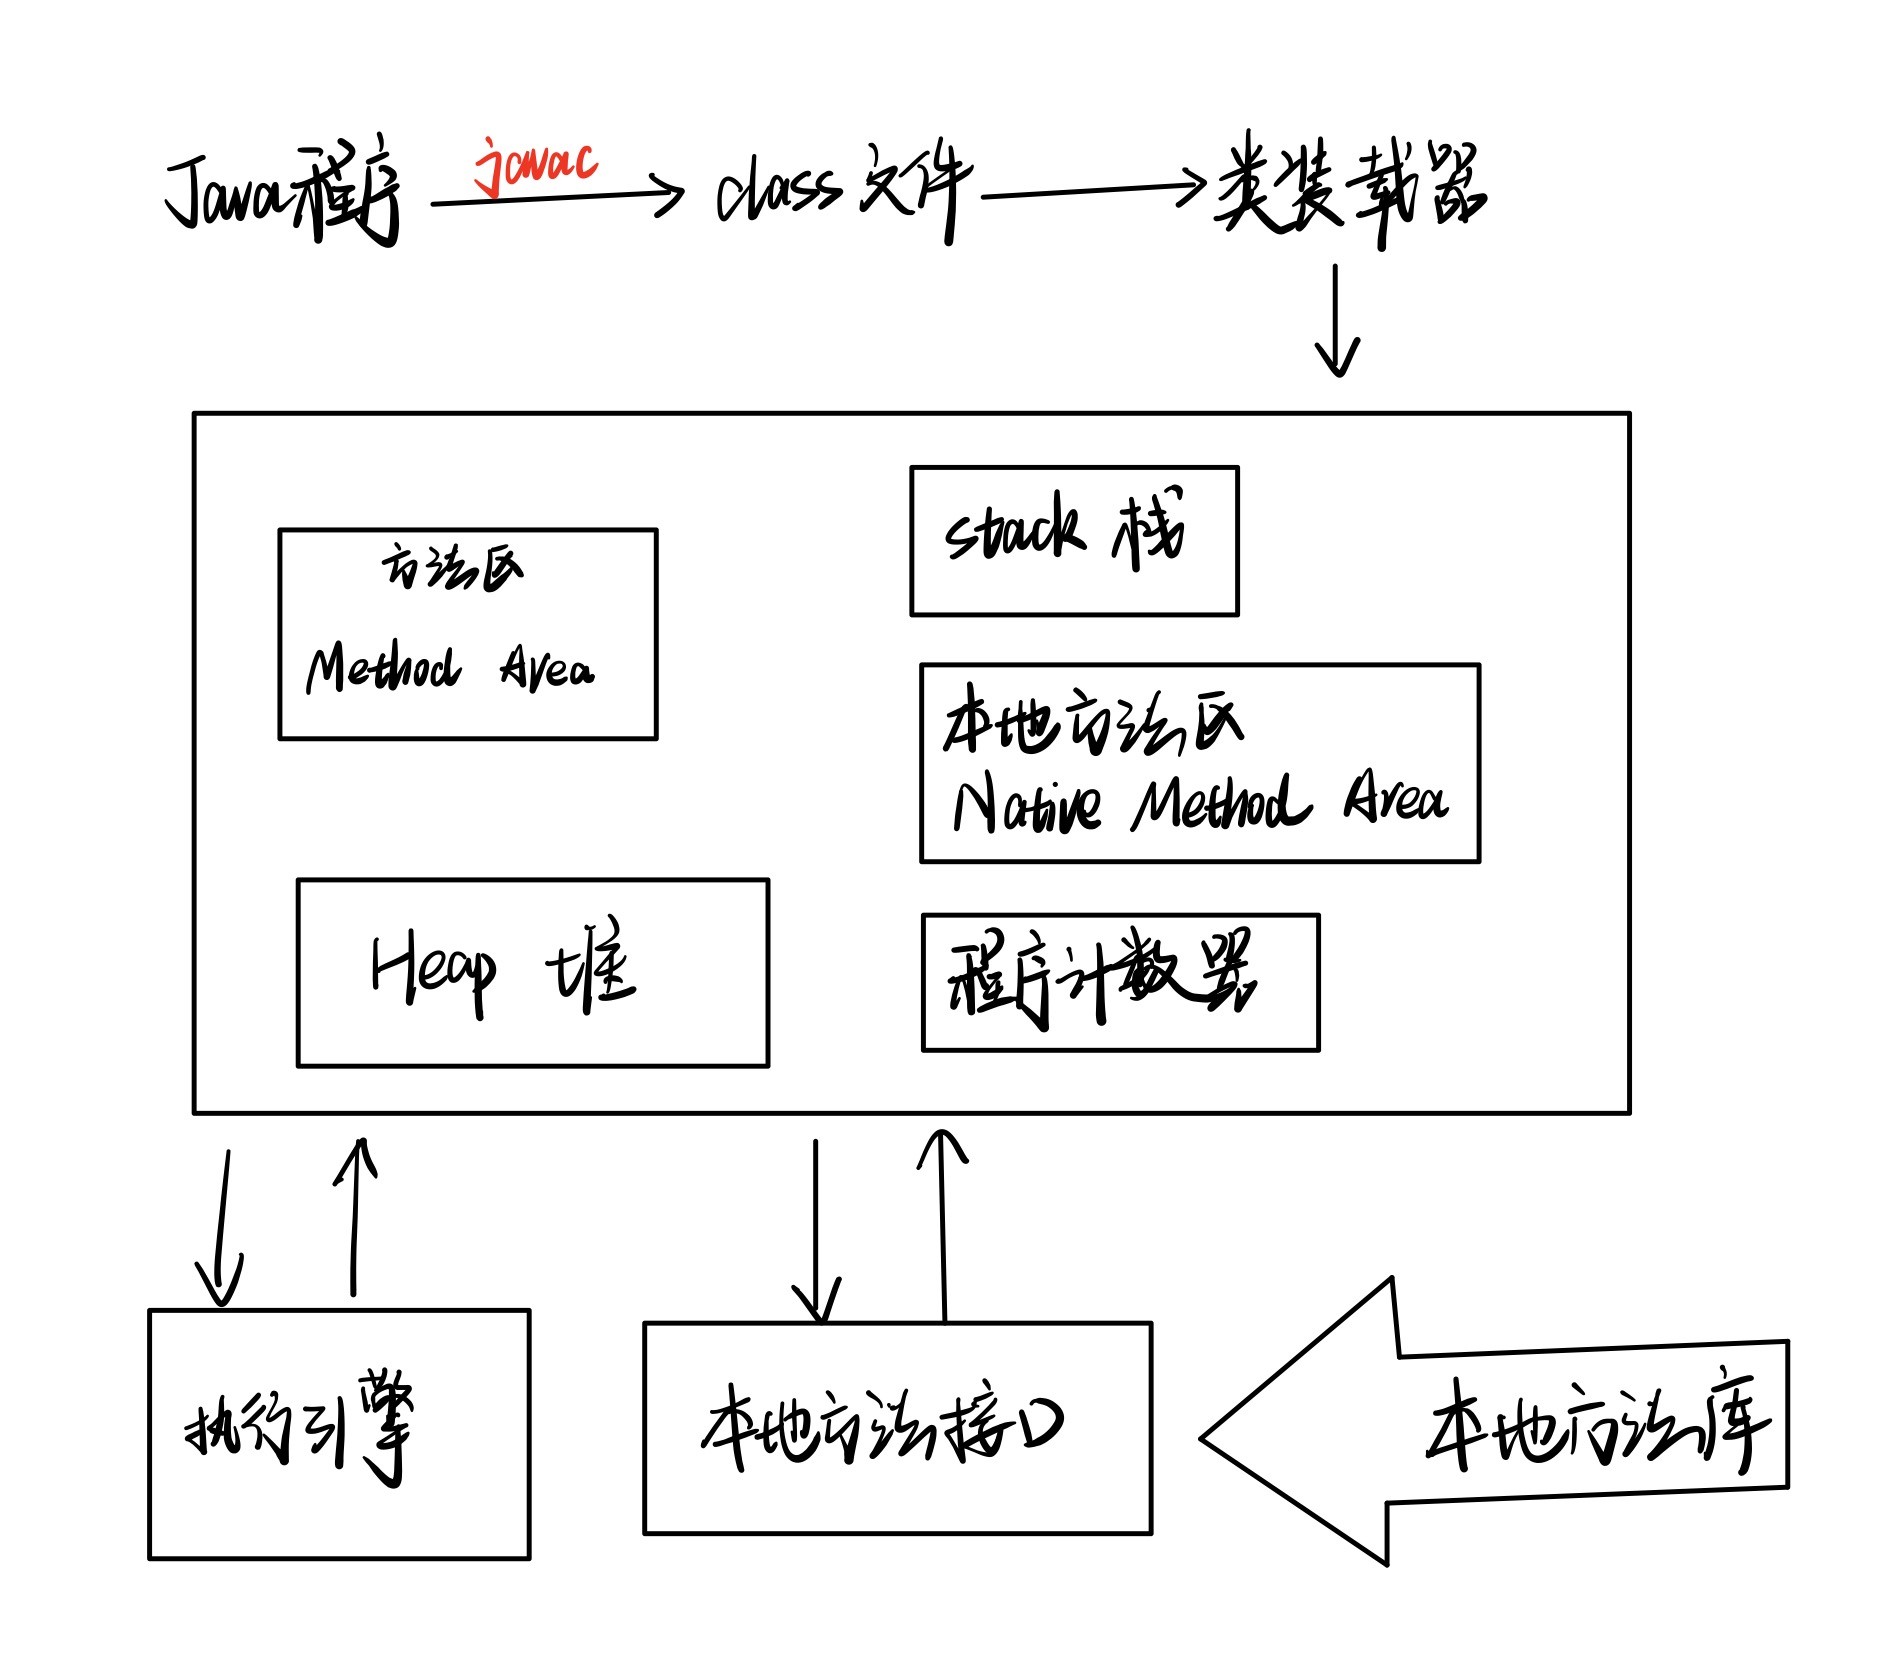 Java程序 javac class 文件 类装载器
stack 栈
方法区
Method Area
本地方法区
Native Method Area
Heap 堆
程序计数器
执行引擎
本地方法接口
本地方法库